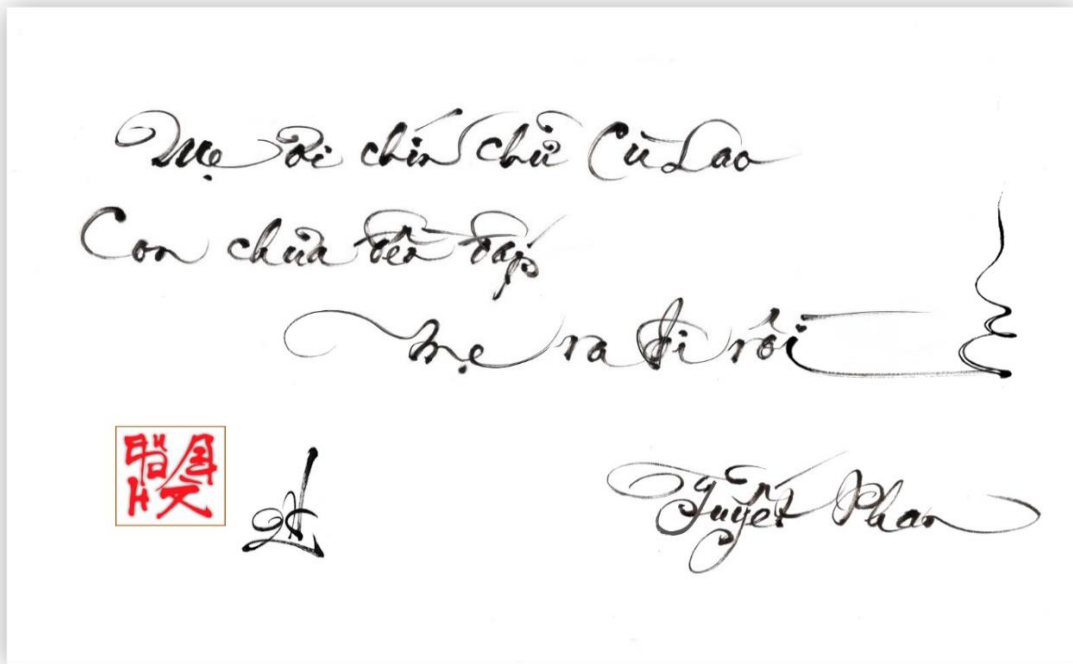 Mẹ ơi chín chữ Cù Lao
Con chưa đền đáp
mẹ ra đi rồi
Tuyết Phan